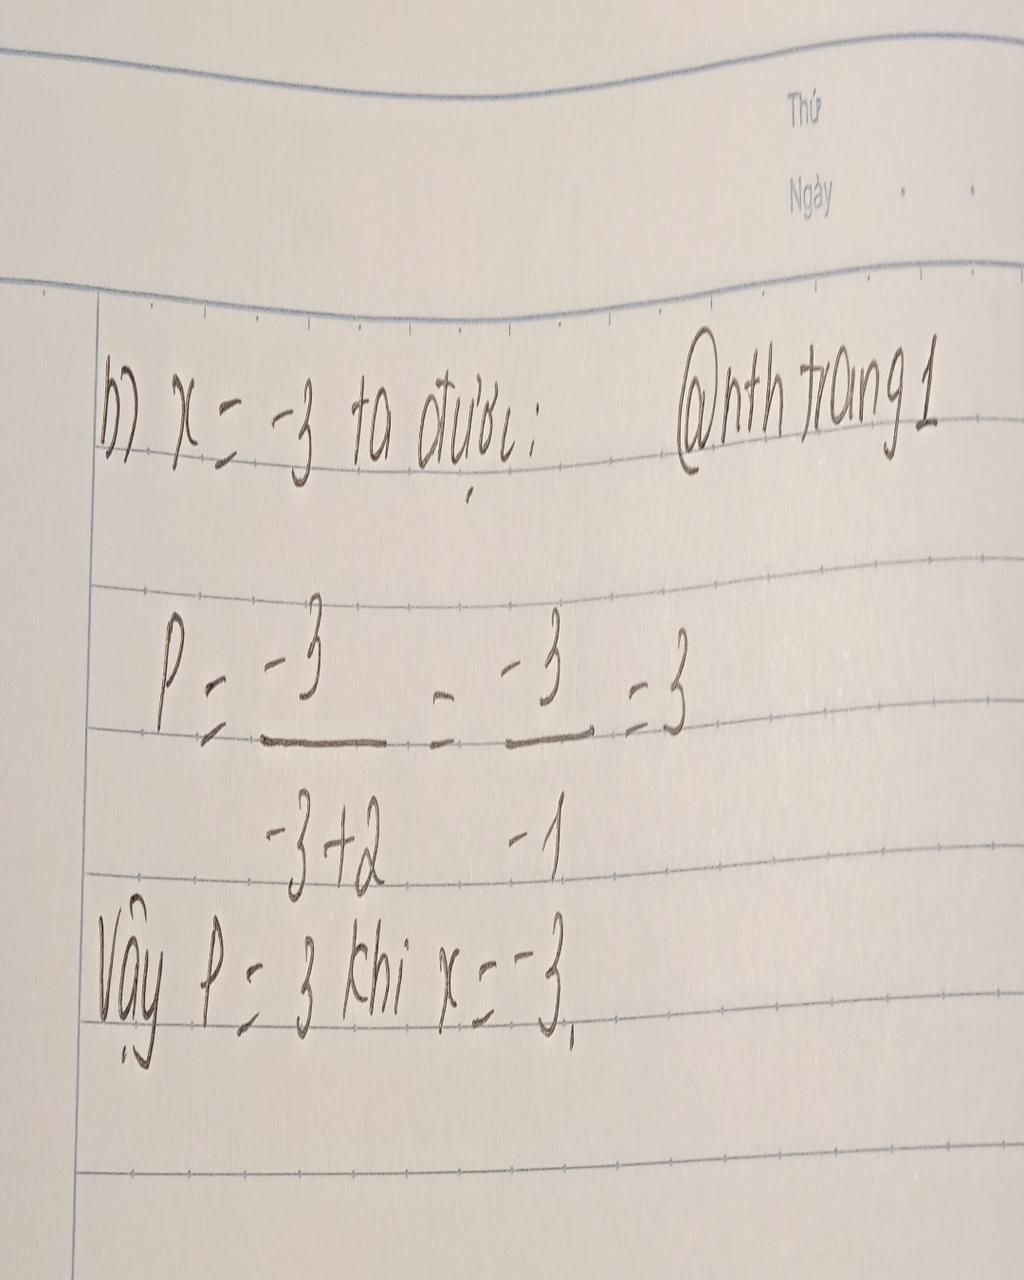 Thứ
Ngày
b) x = -3 ta được: @nth trang 1
P = -3 / -3+2 = -3 / -1 = 3
Vậy P = 3 khi x = -3,